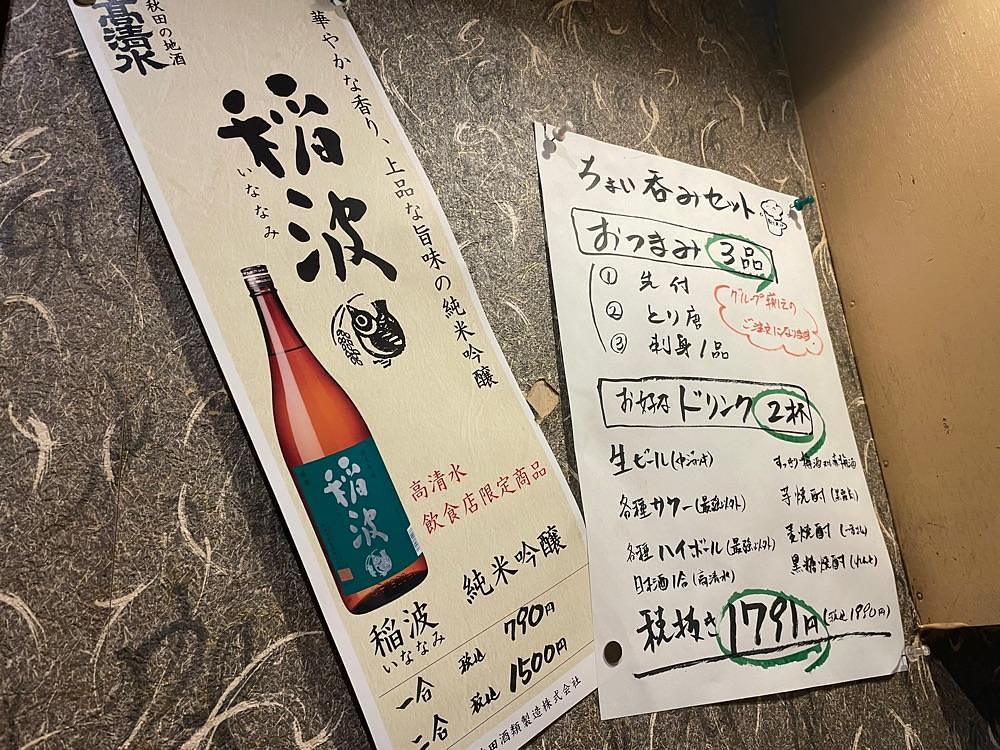 秋田の地酒
高清水
華やかな香り、上品な旨味の純米吟醸
稲波
いななみ
稲波
高清水
飲食店限定商品
純米吟醸
稲波
いななみ
一合 税込 790円
二合 税込 1500円
田酒類製造株式会社
ちょい呑みセット
おつまみ 3品
① 先付
② とり唐
③ 刺身1品
グループ様1との
ご注文になります!
お好きな ドリンク 2杯
生ビール(中ジョッキ)
各種サワー(最強以外)
各種ハイボール(最強以外)
日本酒1合(高清水)
すっきり梅酒
芋焼酎
麦焼酎
黒糖焼酎
税抜き 1791円(税込1990円)